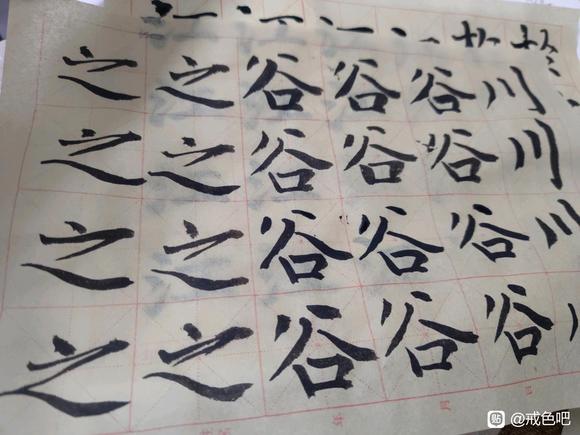 之之谷谷谷川
之之谷谷谷川
之之谷谷谷川
之之谷谷谷
贴 @戒色吧